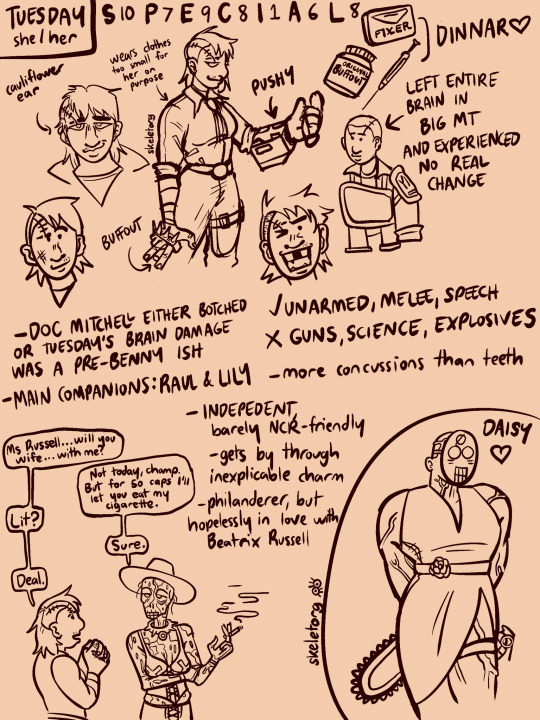 TUESDAY
she/her
S10 P7 E9 C8 I1 A6 L8
FIXER
DINNAR♡
ORIGINAL
BUFFOUT
cauliflower
ear
wears clothes
too small for
her on
purpose
PUSHY
skeletorg
LEFT ENTIRE
BRAIN IN
BIG MT
AND EXPERIENCED
NO REAL
CHANGE
BUFFOUT
-DOC MITCHELL EITHER BOTCHED
OR TUESDAY'S BRAIN DAMAGE
WAS A PRE-BENNY ISH
-MAIN COMPANIONS: RAUL & LILY
✓UNARMED, MELEE, SPEECH
X GUNS, SCIENCE, EXPLOSIVES
-more concussions than teeth
-INDEPEDENT
barely NCR-friendly
-gets by through
inexplicable charm
-philanderer, but
hopelessly in love with
Beatrix Russell
Ms Russell...will you
wife...with me?
Not today, champ.
But for 50 caps I'll
let you eat my
cigarette.
Lit?
Sure.
Deal.
DAISY
♡
skeletorg